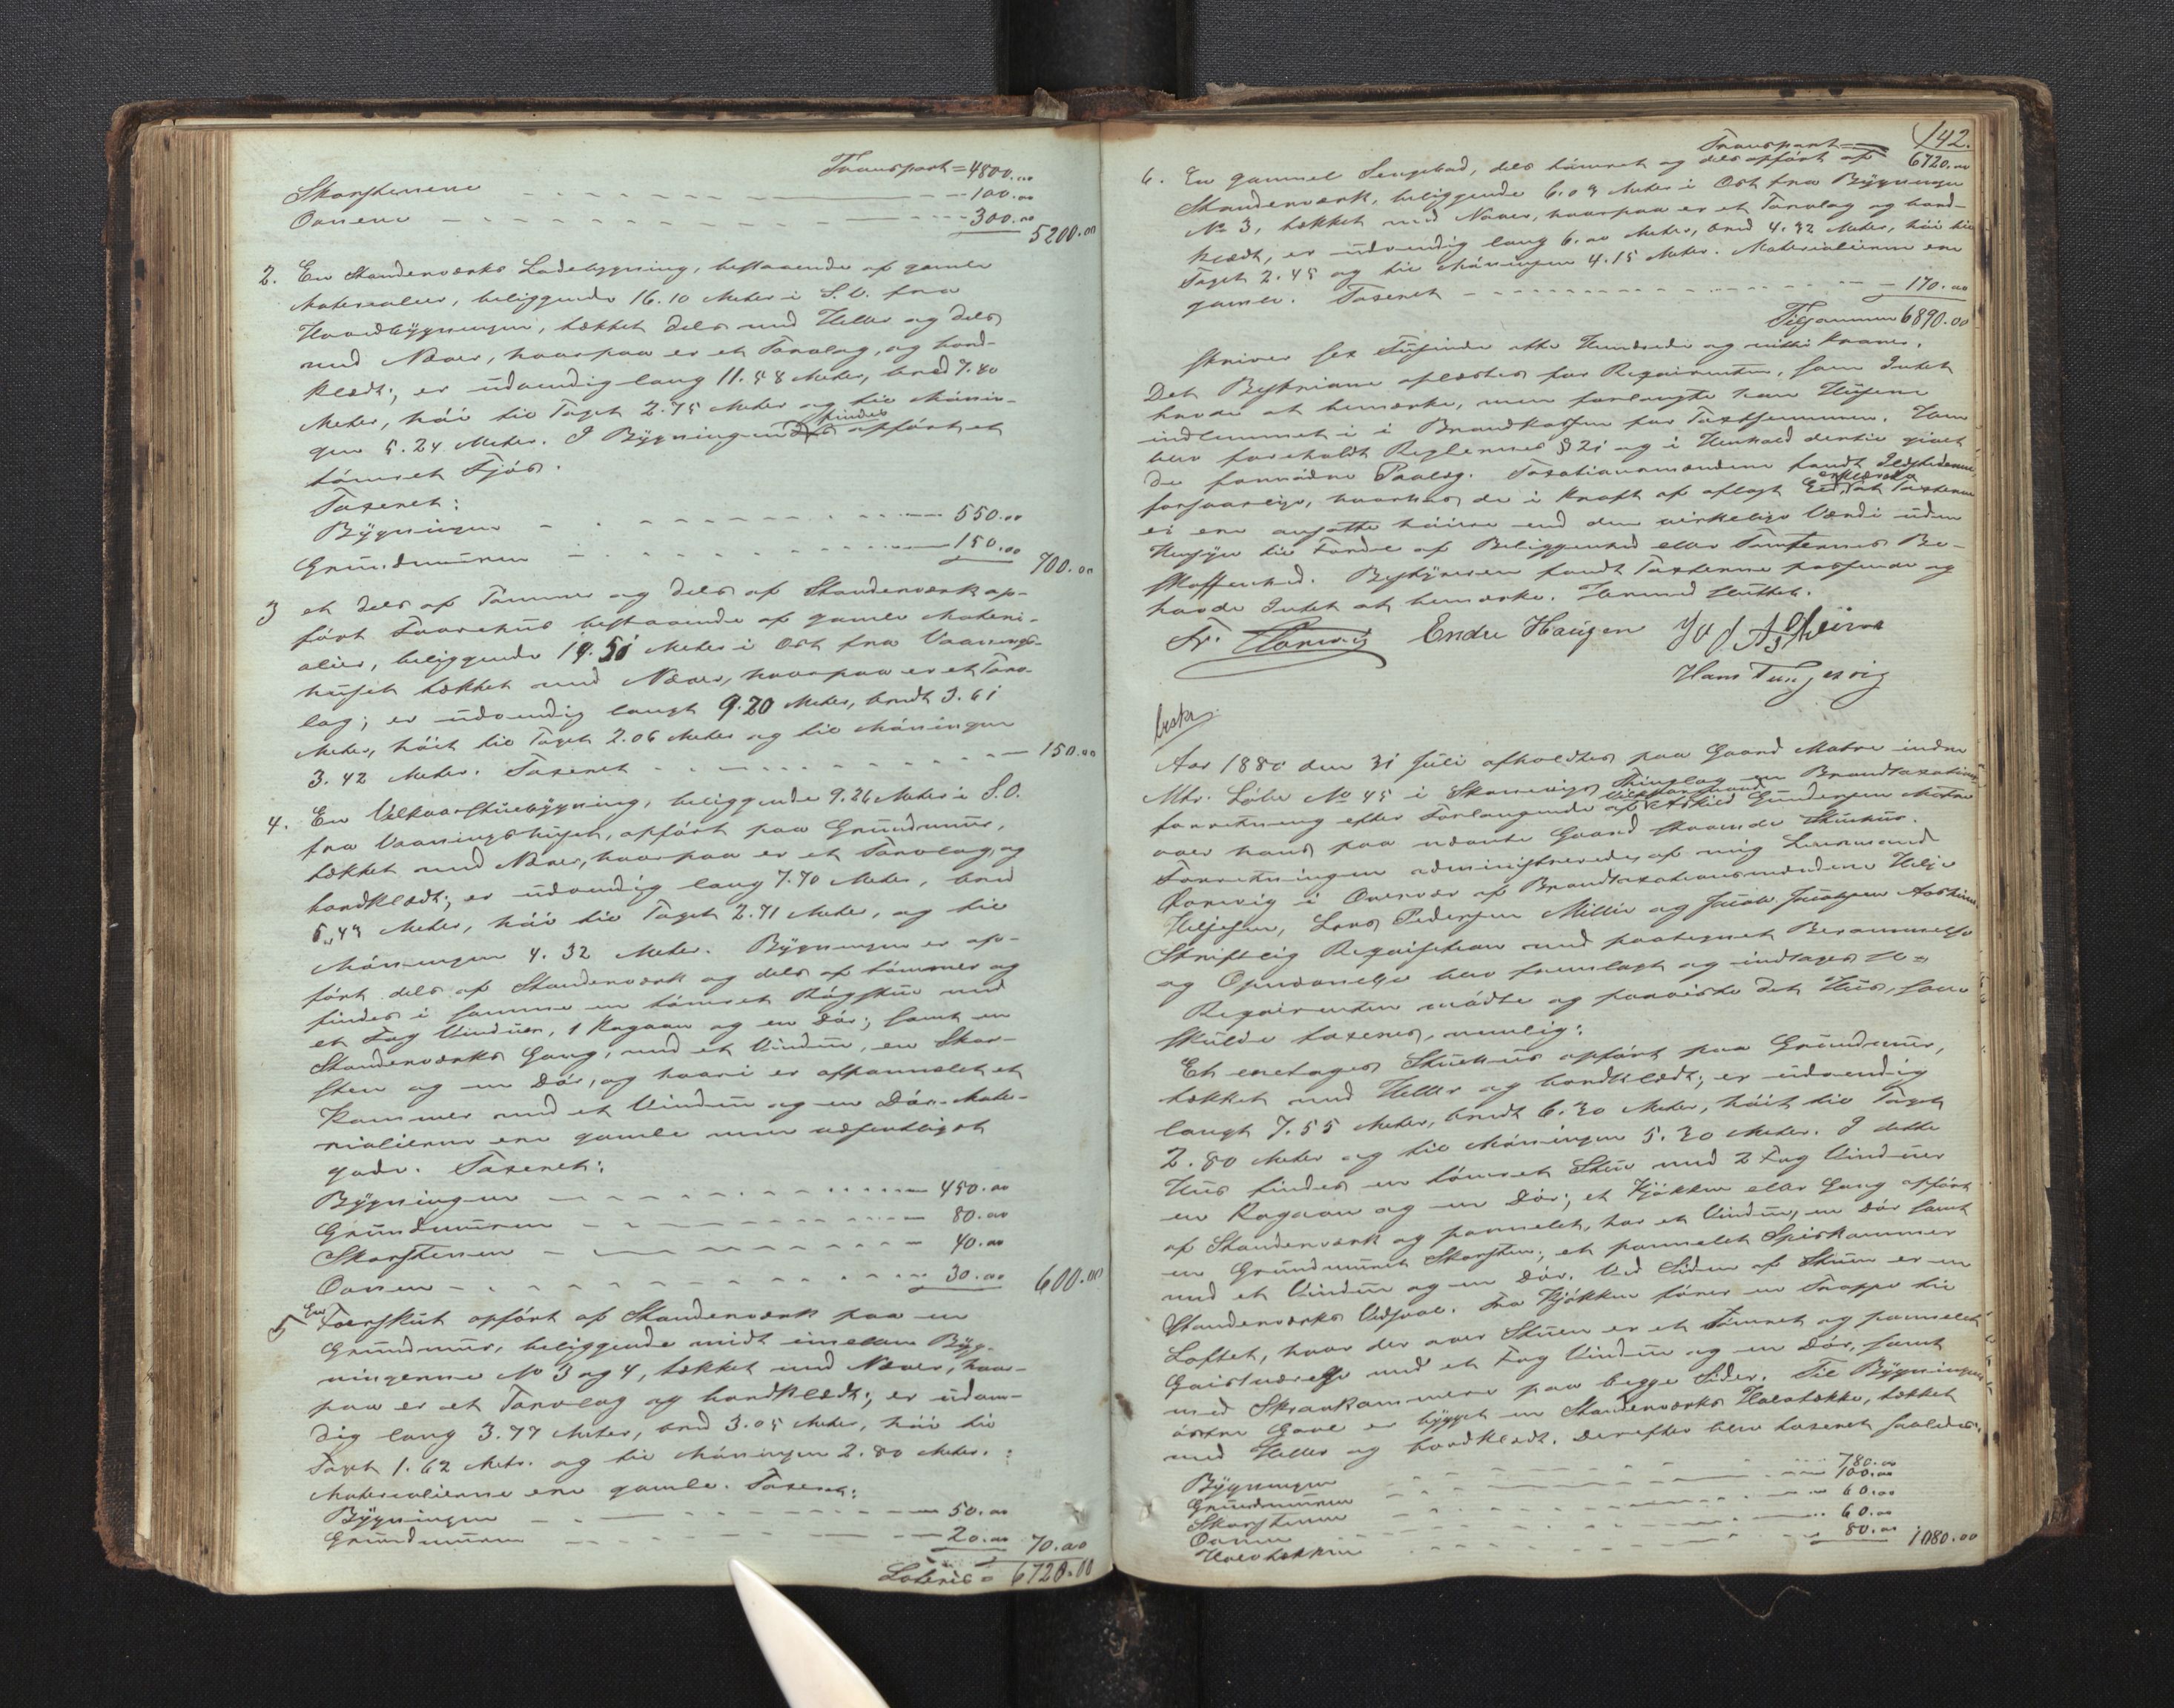 Transport = 4800.00
Skorstenene - - - - 100.00
Ovnene - - - - 300.00 5200.00
2. En Standerværks Ladebygning, bestaaende af gamle
Materialier, beliggende 16.10 Meter i S.V. fra
Hovedbygningen, tækket dels med Heller og dels
med Næver, hvorpaa er et Torvlag, og bord-
klædt; er udvendig lang 11.58 Meter, bred 7.80
Meter, høi til Taget 2.75 Meter og til Mønin-
gen 5.24 Meter. I Bygningen findes opført et
tømret Fjøs.
Taxeret:
Bygningen - - - - 550.00
Grundmuren - - - - 150.00 700.00
3 et dels af Tømmer og dels af Standerværk op-
ført Faarehus bestaaende af gamle Materi-
alier, beliggende 19.51 Meter i Øst fra Vaanings-
huset tækket med Næver, hvorpaa er et Torv-
lag; er udvendig langt 9.20 Meter, bredt 3.61
Meter, høit til Taget 2.06 Meter og til Møningen
3.42 Meter. Taxeret - - - - 150.00
4. En Velkaarstuebygning, beliggende 9.26 Meter i S.O.
fra Vaaningshuset, opført paa Grundmur,
tækket med Næver, hvorpaa er et Torvlag, og
bordklædt; er udvendig lang 7.70 Meter, bred
5.49 Meter, høi til Taget 2.71 Meter, og til
Møningen 4.32 Meter. Bygningen er op-
ført dels af Standerværk og dels af Tømmer og
findes i samme en tømret Røgstue med
et Fag Vinduer, 1 Kogeovn og en Dør; samt en
Standerværks Gang, med et Vindue, en Skor-
sten og en Dør, og hvori er afpanelet et
Kammer med et Vindue og en Dør. Mate-
rialierne ere gamle men
gode. Taxeret:
Bygningen - - - - 450.00
Grundmuren - - - - 80.00
Skorstenen - - - - 40.00
Ovnen - - - - 30.00 600.00
5 En Tørskut opført af Standerværk paa en
Grundmur, beliggende midt imellem Byg-
ningerne No 3 og 4, tækket med Næver, hvor-
paa er et Torvlag og bordklædt; er udven-
dig lang 3.77 Meter, bred 3.05 Meter, høi til
Taget 1.62 Mete. og til Møningen 2.80 Meter.
Materialierne ere gamle. Taxeret:
Bygningen - - - - 50.00
Grundmuren - - - - 20.00 70.00
Lateris = 6720.00
142.
Transport = 6720.00
6. En gammel Sengebod, dels tømret og dels opført af
Standerværk, beliggende 6.03 Meter i Øst fra Bygningen
No 3, tækket med Næver, hvorpaa er et Torvlag og bord-
klædt, er udvendig lang 6.00 Meter, bred 4.32 Meter, høi til
Taget 2.45 og til Møningen 4.15 Meter. Materialierne ere
gamle. Taxeret - - - - 170.00
Tilsammen 6890.00
skriver sex Tusinde otte Hundrede og nitti Kroner.
Det Beskrivne oplæstes for Requirenten, som Intet
havde at bemærke, men forlangte han Husene
indlemmet i Brandkassen for Taxtsummen. Ham
blev foreholdt Reglernes § 21 og i Henhold dertil givet
de fornødne Paalæg. Taxationsmændene fandt Ildstederne
forsvarlige, hvorhos de i Kraft af aflagt Eed erklærede at Taxterne
ei ere ansatte høiere end den virkelige Værdi uden
Hensyn til Fordel af Beliggenhed eller Tomternes Be-
skaffenhed. Bestyreren fandt Taxterne passende og
havde Intet at bemærke. Hermed sluttet.
Fr. Endre Haugen
Hans Tungesvig
Aar 1880 den 31 Juli afholdtes paa Gaard Matre indre
Mtr. Løbe No 45 i Skonevigs Thinglag en Brandtaxations-
forretning efter Forlangende af Velkaarsmand Askild Gundersen Matre
over hans paa nævnte Gaard staaende Stuehus.
Forretningen administreredes af mig Lensmand
i Overvær af Brandtaxationsmændene Helje
Heljesen, Lars Pedersen Millie og Jacob Jacobsen
Skriftlig Requisition med paategnet Berammelse
og Opnævnelse blev fremlagt og indtages
Requirenten mødte og paaviste det Hus, som
skulde taxeres, nemlig:
Et enetages Stuehus opført paa Grundmur,
tækket med Heller og bordklædt; er udvendig
langt 7.55 Meter, bredt 6.30 Meter, høit til Taget
2.80 Meter og til Møningen 5.30 Meter. I dette
Hus findes en tømret Stue med 2 Fag Vinduer
en Kogeovn og en Dør; et Kjøkken eller Gang opført
af Standerværk og panelet, har et Vindue, en Dør samt
en Grundmuret Skorsten; et panelet Spiskammer
med et Vindue og en Dør. Ved Siden af Stuen er en
Standerværks Vedsval. Fra Kjøkken fører en Trappe til
Loftet, hvor der over Stuen er et tømret og panelet
Gaistværelse med et Fag Vindue og en Dør, samt
med Skraakammere paa begge Sider. Til Bygningens
østre Gavl er bygget en Standerværks Halvtække, tækket
med Heller og bordklædt. Derefter blev taxeret saaledes:
Bygningen - - - - 780.00
Grundmuren - - - - 100.00
Skorstenen - - - - 60.00
Ovnen - - - - 60.00
Halvtækken - - - - 80.00 1080.00